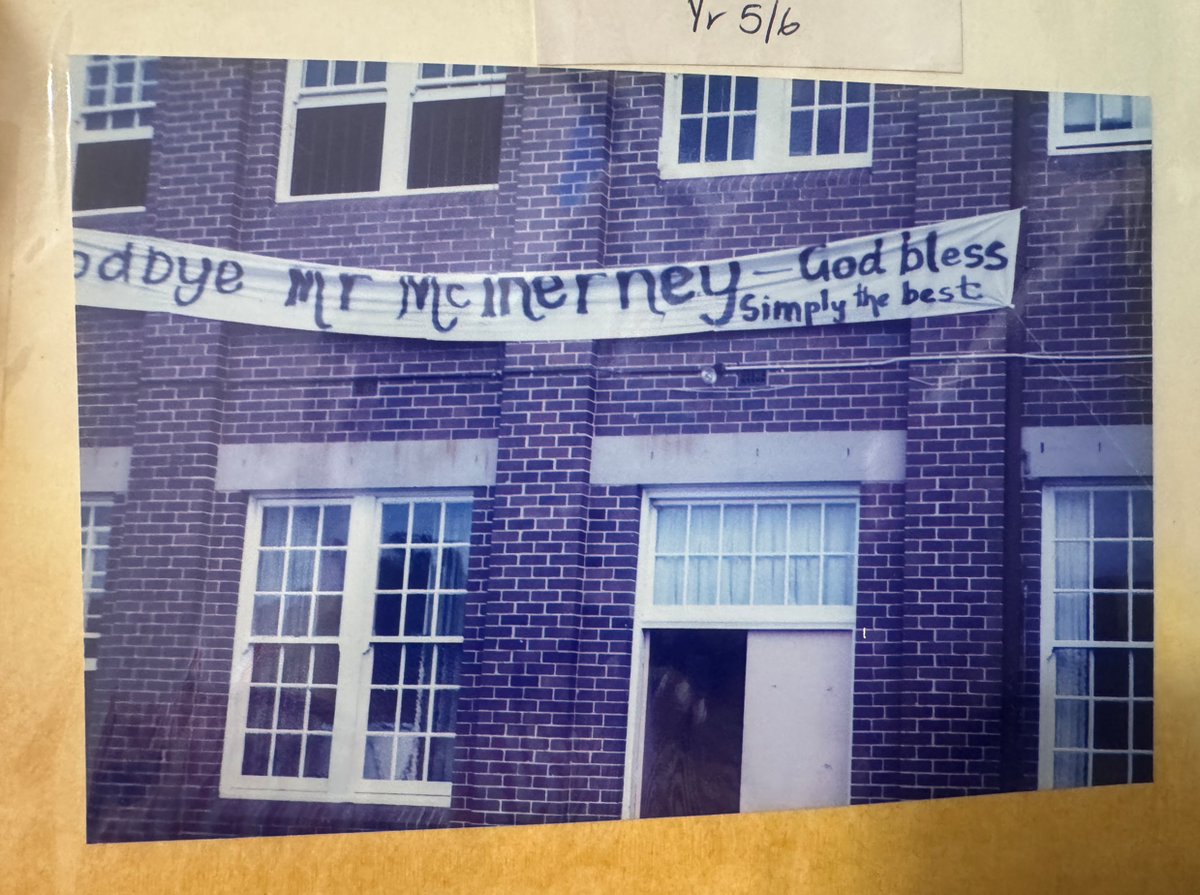 Yr 5/6
odbye Mr McInerney – God bless
Simply the best